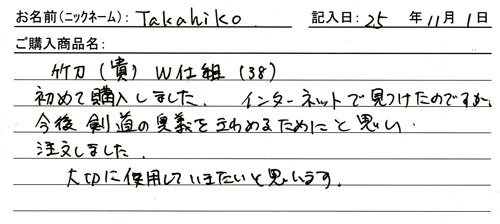 お名前(ニックネーム): Takahiko. 記入日: 25 年 11月 1日
ご購入商品名:
竹刀 (貴) W仕組 (38)
初めて購入しました. インターネットで見つけたのですが,
今後 剣道の奥義をきわめるためにと思い
注文しました.
大切に使用していきたいと思います.